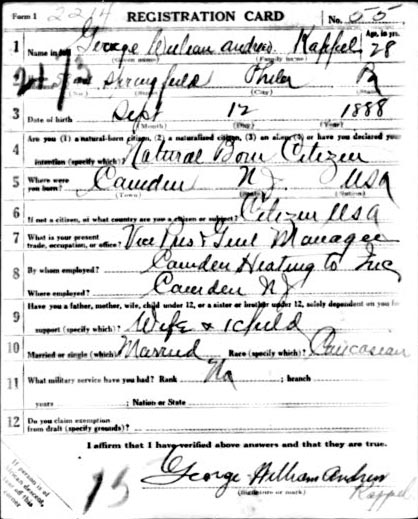 Form 1 2214 REGISTRATION CARD No. 55
1 Name in full George William Andrew Kappel Age, in yrs. 28
(Given name) (Family name)
2 Springfield Phila Pa
(No.) (Street) (City) (State)
3 Date of birth Sept 12 1888
(Month) (Day) (Year)
Are you (1) a natural-born citizen, (2) a naturalized citizen, (3) an alien, (4) or have you declared your
4 intention (specify which)? Natural Born Citizen
5 Where were you born? Camden N J. USA
(Town) (State) (Nation)
6 If not a citizen, of what country are you a citizen or subject? Citizen USA
7 What is your present trade, occupation, or office? Vice Pres & Genl Manager
8 By whom employed? Camden Heating Co Inc
Where employed? Camden NJ
Have you a father, mother, wife, child under 12, or a sister or brother under 12, solely dependent on you for
9 support (specify which)? Wife & 1 child
10 Married or single (which)? Married Race (specify which)? Caucasian
11 What military service have you had? Rank No ; branch
years ; Nation or State
12 Do you claim exemption from draft (specify grounds)?
I affirm that I have verified above answers and that they are true.
George William Andrew
Kappel
(Signature or mark)
If person is of
African descent,
tear off this
corner